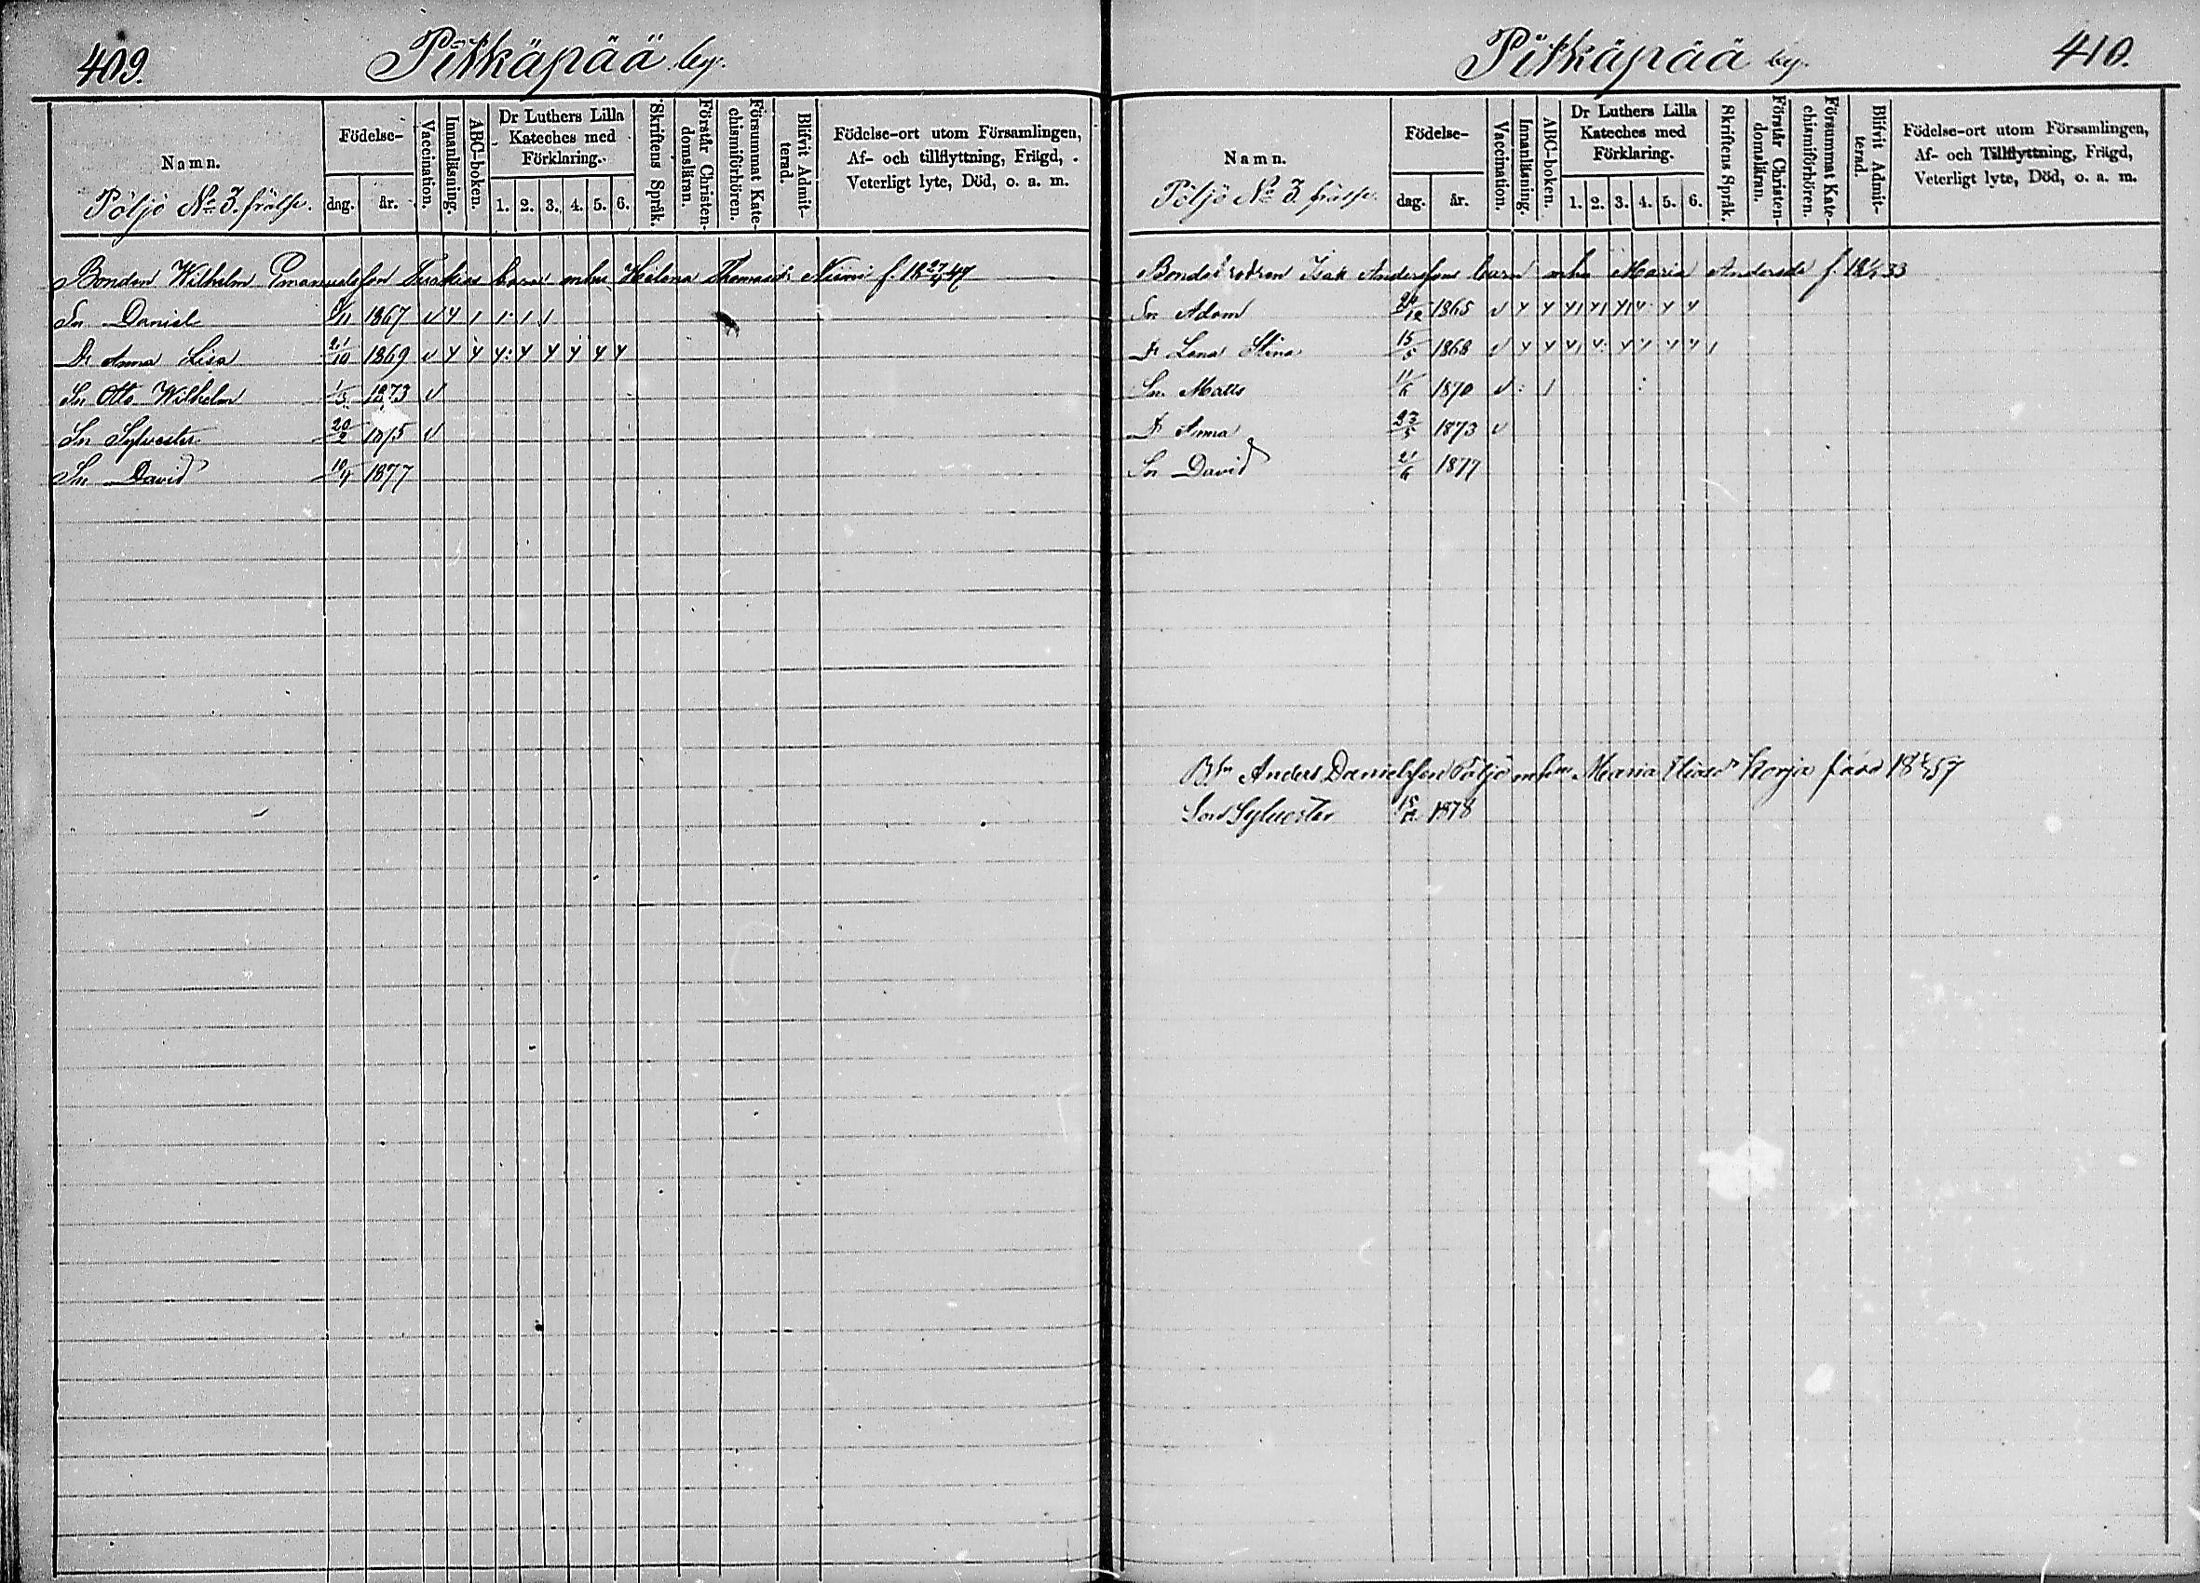 409.
Pitkäpää by.
Namn.
Pöljö No 3. frälse.
Födelse-
dag. år.
Vaccination.
Innanläsning.
ABC-boken.
Dr Luthers Lilla
Kateches med
Förklaring.
1. 2. 3. 4. 5. 6.
Skriftens Språk.
Förstår Christen-
domsläran.
Försummat Kate-
chismiförhören.
Blifvit Admit-
terad.
Födelse-ort utom Församlingen,
Af- och tillflyttning, Frägd,
Veterligt lyte, Död, o. a. m.
Bonden Wilhelm Emanuelsson barn mhu Helena Thomasdr Niemi f. 18 27/4 47
Sn Daniel 1867
Dr Anna Lisa 21/10 1869
Sn Otto Wilhelm 1/3 1873
Sn Sylvester 20/2 1875
Sn David 1877
Pitkäpää by.
410.
Namn.
Pöljö No 3. frälse.
Födelse-
dag. år.
Vaccination.
Innanläsning.
ABC-boken.
Dr Luthers Lilla
Kateches med
Förklaring.
1. 2. 3. 4. 5. 6.
Skriftens Språk.
Förstår Christen-
domsläran.
Försummat Kate-
chismiförhören.
Blifvit Admit-
terad.
Födelse-ort utom Församlingen,
Af- och Tillflyttning, Frägd,
Veterligt lyte, Död, o. a. m.
Bondebrodren Isak Anderssons barn mhu Maria Andersdr f. 33
Sn Adam 24/12 1865
Dr Lena Stina 15/5 1868
Sn Matts 11/6 1870
Dr Anna 23/5 1873
Sn David 21/6 1877
Anders Danielsson Pöljö mhu Maria Eliasdr Korja född 57
Son Sylvester 1878